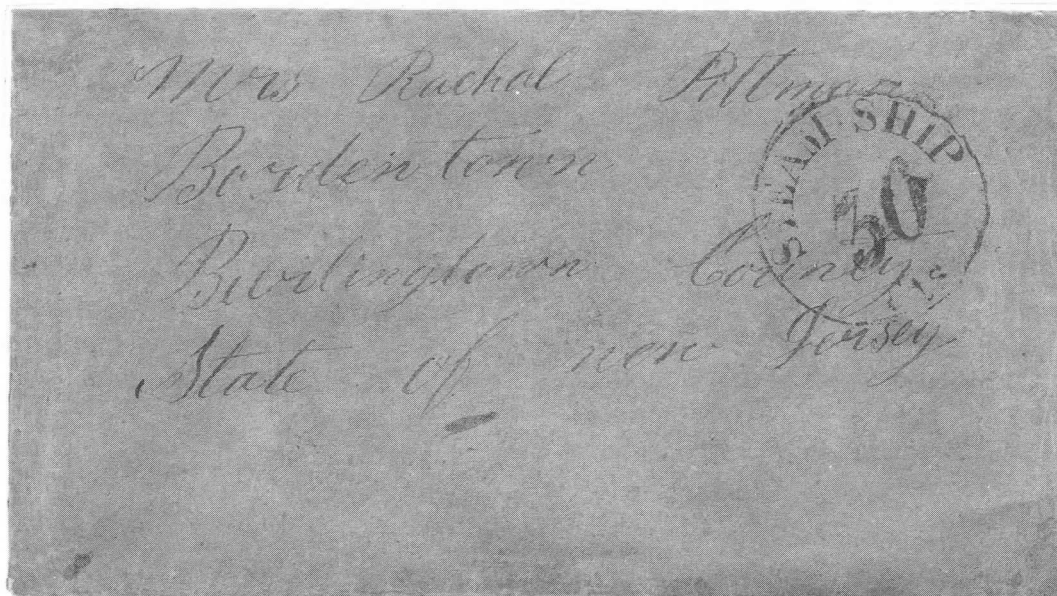 Mrs Rachal Pittman
Bordentown
Burlingtown County
State of new Jersey
STEAM SHIP
30